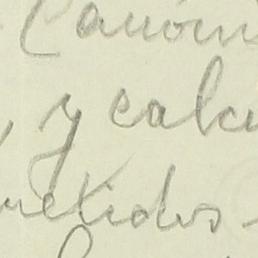 Canóni
y calcu
metidos